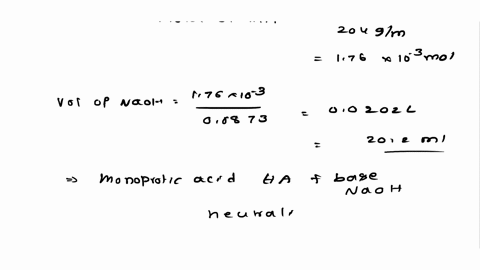 204 g/m
= 1.76 × 10-3 mol
Vol of NaOH = 1.76 ×10-3 / 0.0873 = 0.0202L
= 20.2 ml
⇒ Monoprotic acid HA + base
NaOH
neural